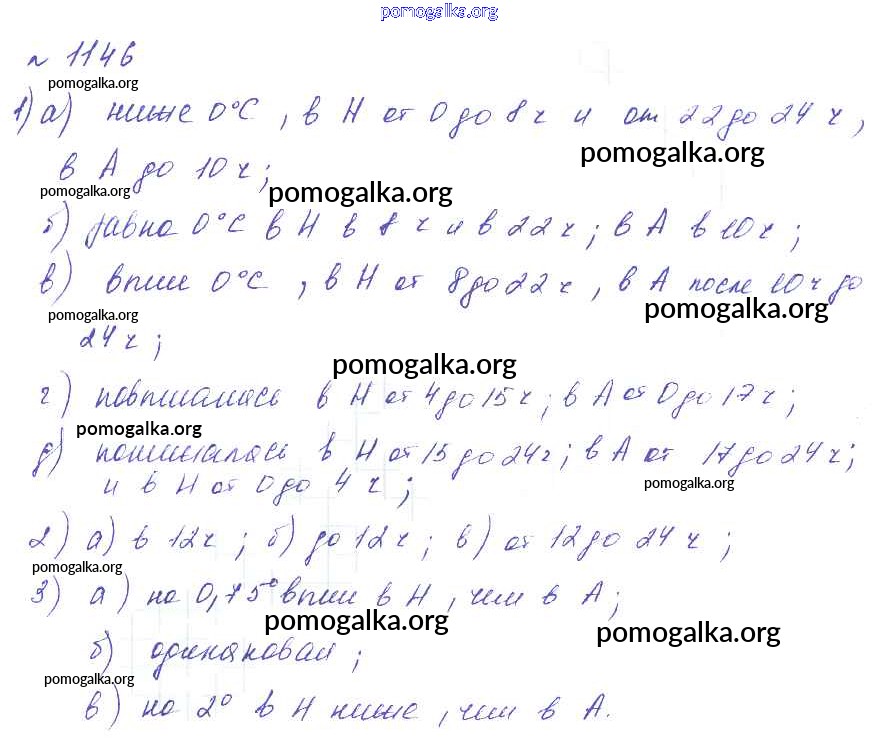 pomogalka.org
№ 1146
pomogalka.org
1) а) ниже 0°С, в Н от 0 до 8 ч и от 22 до 24 ч,
pomogalka.org
в А до 10 ч;
pomogalka.org pomogalka.org
б) равна 0°С в Н в 8 ч и в 22 ч; в А в 10 ч;
в) выше 0°С, в Н от 8 до 22 ч, в А после 10 ч до
pomogalka.org pomogalka.org
24 ч;
pomogalka.org
г) повышалась в Н от 4 до 15 ч; в А от 0 до 17 ч;
pomogalka.org
д) понижалась в Н от 15 до 24 ч; в А от 17 до 24 ч;
и в Н от 0 до 4 ч;
pomogalka.org
2) а) в 12 ч; б) до 12 ч; в) от 12 до 24 ч;
pomogalka.org
3) а) на 0,75° выше в Н, чем в А;
pomogalka.org pomogalka.org
б) одинаковая;
pomogalka.org
в) на 2° в Н ниже, чем в А.